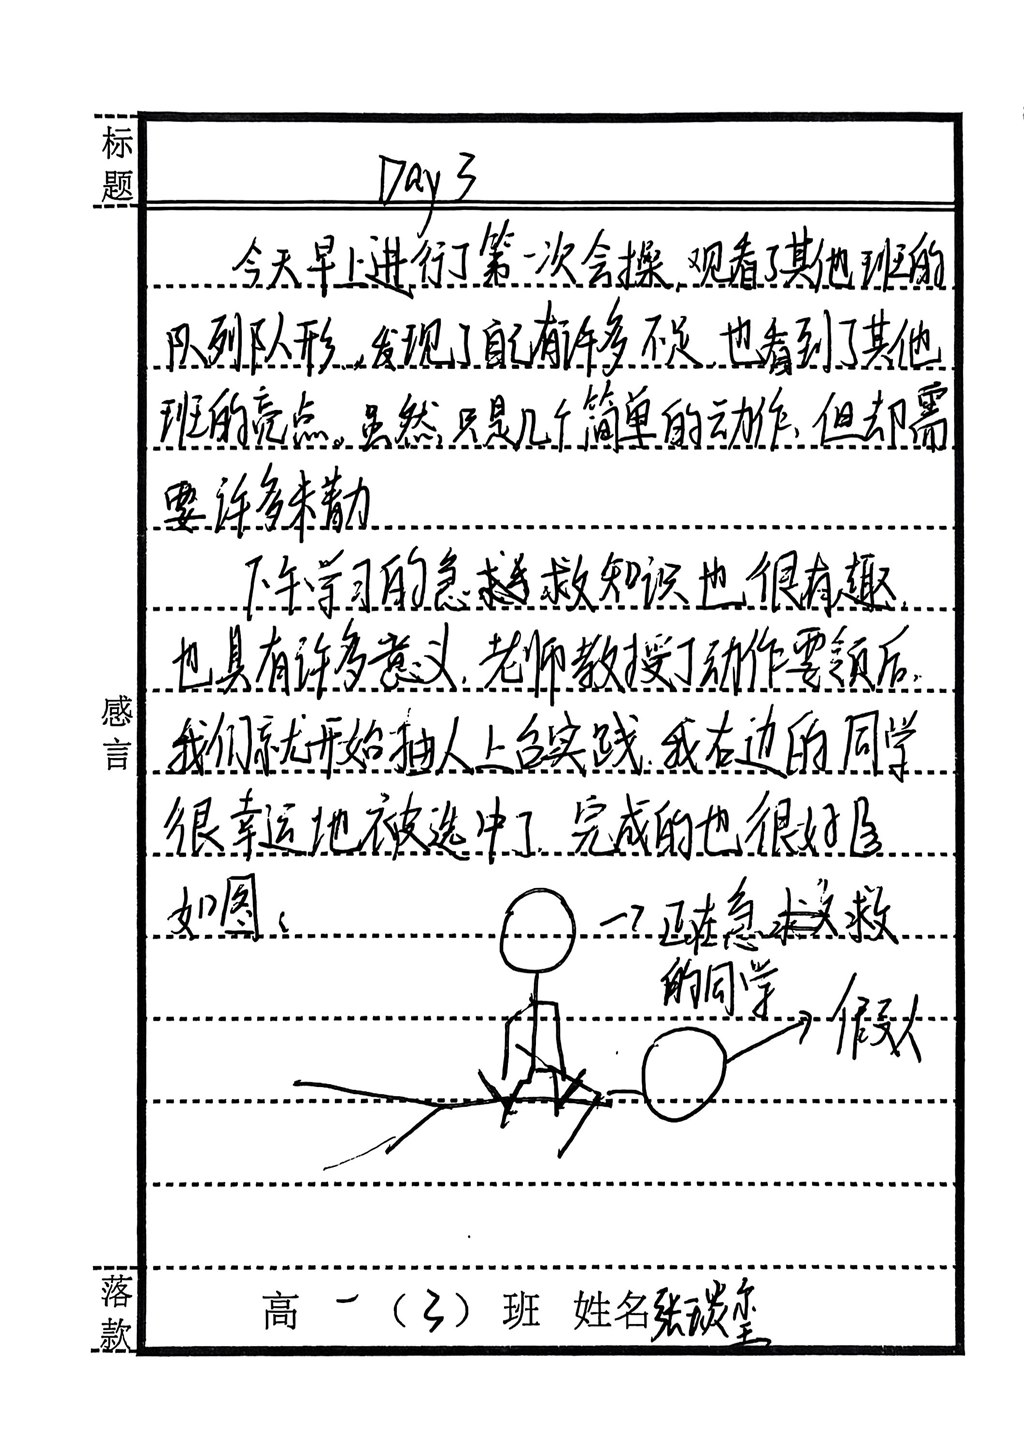 标题
Day 3
今天早上进行了第一次会操,观看了其他班的
队列队形,发现了自己有许多不足,也看到了其他
班的亮点。虽然只是几个简单的动作,但却需
要许多精力
下午学习的急救知识也很有趣,
也具有许多意义,老师教授了动作要领后,
我们就开始抽人上台实践,我右边的同学
很幸运地被选中了,完成的也很好
如图:
→正在急救
的同学
假人
感言
落款
高一(3)班 姓名张琰玺